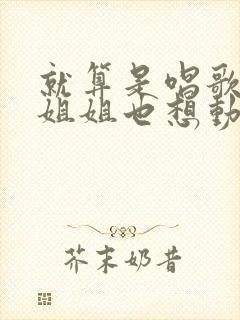 就算是唱歌
姐姐也想動
芥末奶昔